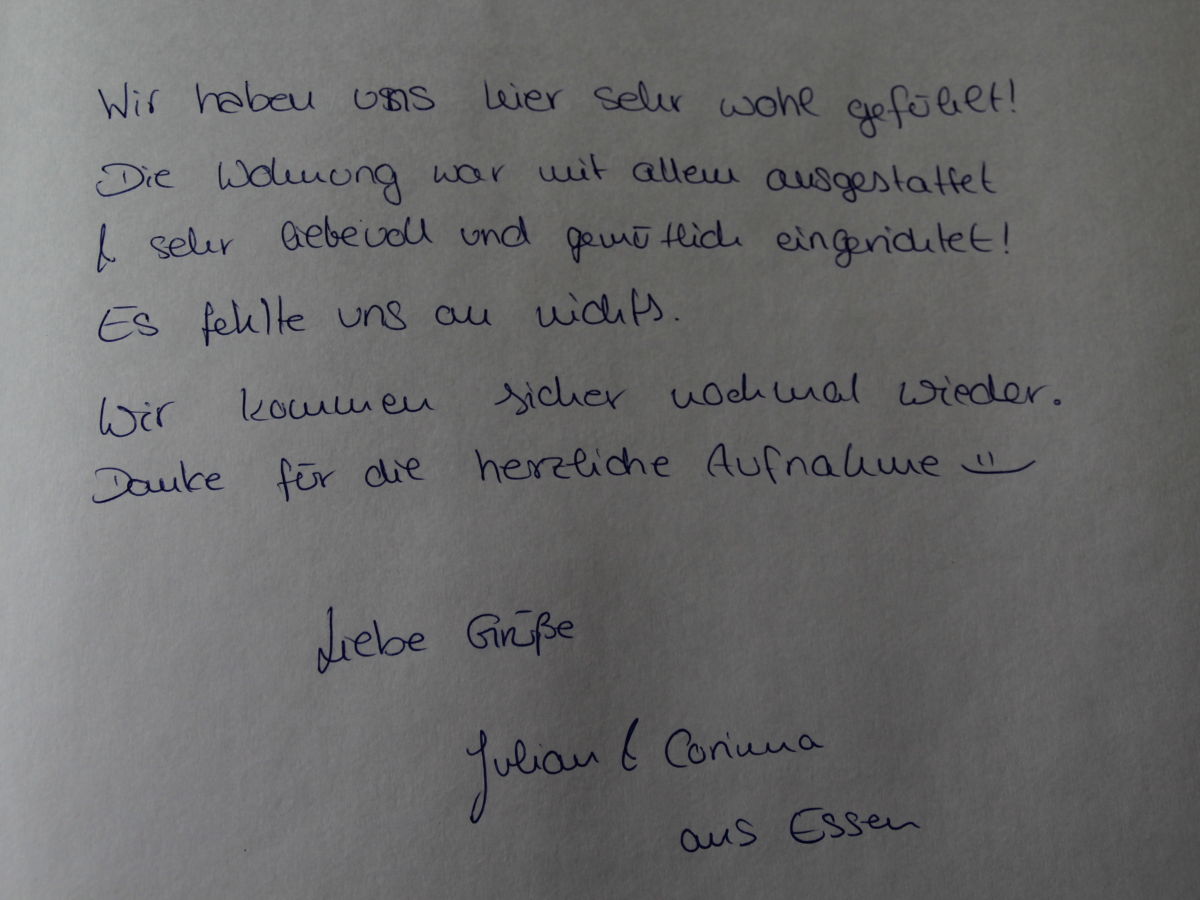 Wir haben uns hier sehr wohl gefühlt!
Die Wohnung war mit allem ausgestattet
& sehr liebevoll und gemütlich eingerichtet!
Es fehlte uns an nichts.
Wir kommen sicher nochmal wieder.
Danke für die herzliche Aufnahme
Liebe Grüße
Julian & Corinna
aus Essen